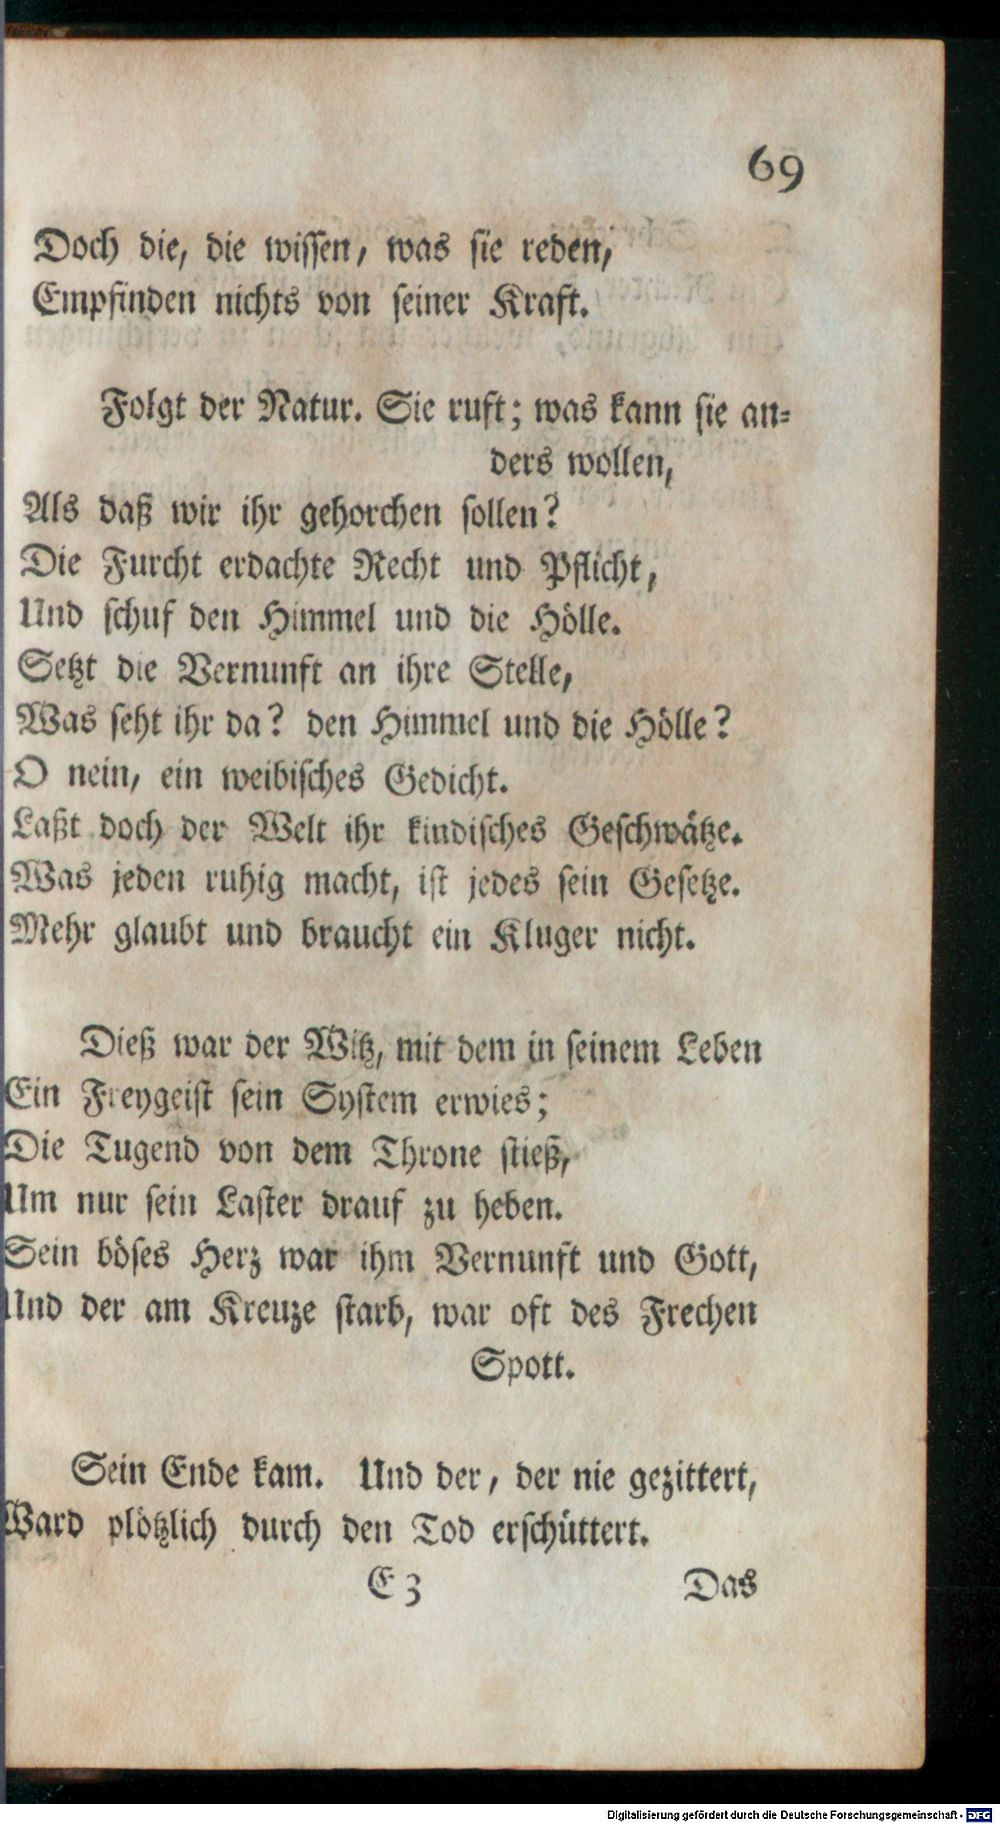 69
Doch die, die wissen, was sie reden,
Empfinden nichts von seiner Kraft.
Folgt der Natur. Sie ruft; was kann sie an-
ders wollen,
Als daß wir ihr gehorchen sollen?
Die Furcht erdachte Recht und Pflicht,
Und schuf den Himmel und die Hölle.
Setzt die Vernunft an ihre Stelle,
Was seht ihr da? den Himmel und die Hölle?
O nein, ein weibisches Gedicht.
Laßt doch der Welt ihr kindisches Geschwätze.
Was jeden ruhig macht, ist jedes sein Gesetze.
Mehr glaubt und braucht ein Kluger nicht.
Dieß war der Witz, mit dem in seinem Leben
Ein Freygeist sein System erwies;
Die Tugend von dem Throne stieß,
Um nur sein Laster drauf zu heben.
Sein böses Herz war ihm Vernunft und Gott,
Und der am Kreuze starb, war oft des Frechen
Spott.
Sein Ende kam. Und der, der nie gezittert,
Ward plötzlich durch den Tod erschüttert.
E 3 Das
Digitalisierung gefördert durch die Deutsche Forschungsgemeinschaft - DFG